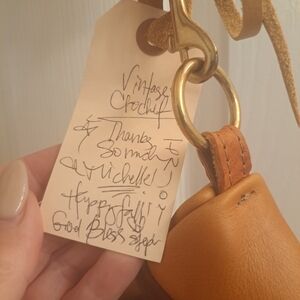 Vintage
Crochet
Thanks
So much
Michelle!
Happy fall!
God Bless